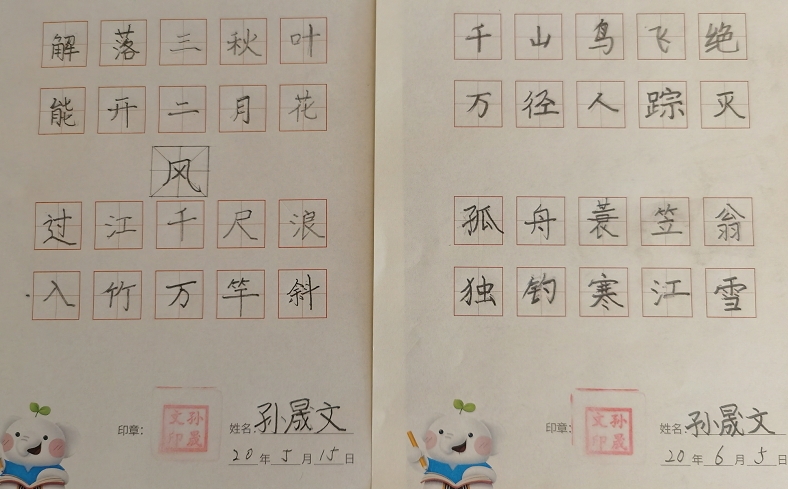 解落三秋叶
能开二月花
风
过江千尺浪
入竹万竿斜
印章：
孙晟文印
姓名：孙晟文
20年5月15日
千山鸟飞绝
万径人踪灭
孤舟蓑笠翁
独钓寒江雪
印章：
孙晟文印
姓名：孙晟文
20年6月5日